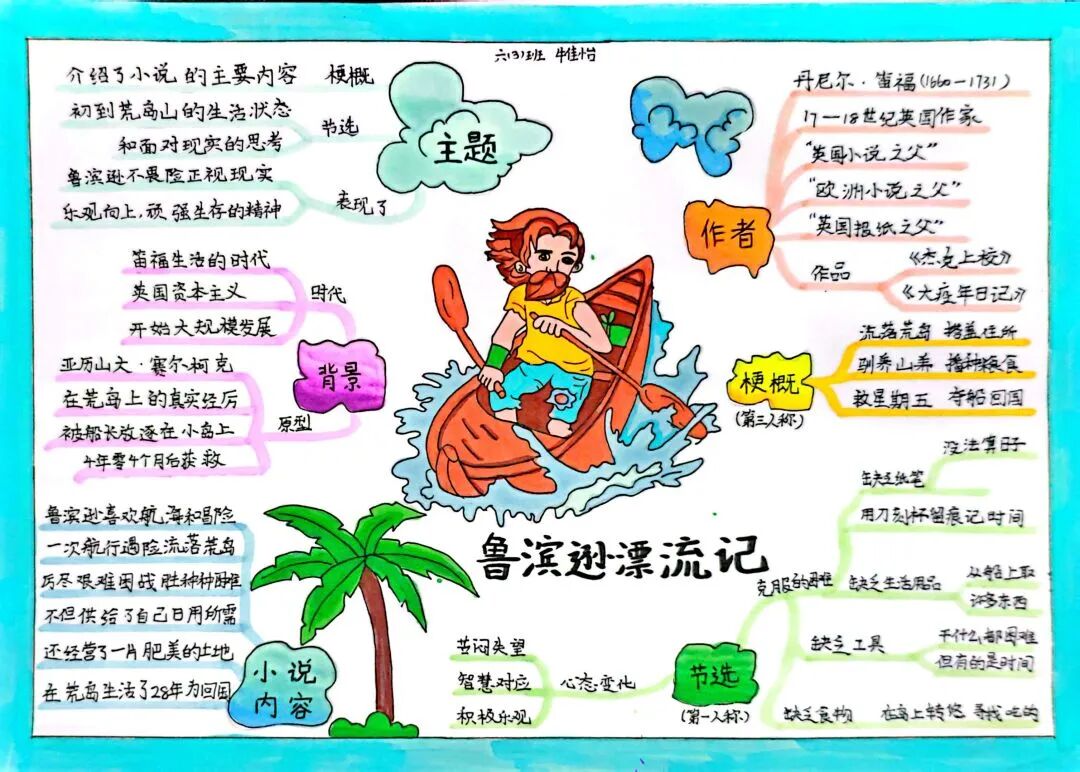 六(3)班 牛佳怡
主题
介绍了小说的主要内容 梗概
初到荒岛山的生活状态
节选
和面对现实的思考
鲁滨逊不畏险正视现实
表现了
乐观向上,顽强生存的精神
背景
笛福生活的时代
英国资本主义
时代
开始大规模发展
亚历山大·赛尔柯克
在荒岛上的真实经历
原型
被船长放逐在小岛上
4年零4个月后获救
鲁滨逊喜欢航海和冒险
一次航行遇险流落荒岛
历尽艰难困战胜种种困难
不但供给了自己日用所需
还经营了一片肥美的土地
在荒岛生活了28年为回国
小说
内容
鲁滨逊漂流记
作者
丹尼尔·笛福(1660—1731)
17—18世纪英国作家
"英国小说之父"
"欧洲小说之父"
"英国报纸之父"
作品
《杰克上校》
《大疫年日记》
梗概
(第三人称)
流落荒岛 搭盖住所
驯养山养 播种粮食
救星期五 夺船回国
节选
(第一人称)
心态变化
苦闷失望
智慧对应
积极乐观
克服的困难
缺乏纸笔
没法算日子
用刀刻杯留痕记时间
缺乏生活用品
从船上取
许多东西
缺乏工具
干什么都困难
但有的是时间
缺乏食物 在岛上转悠 寻找吃的